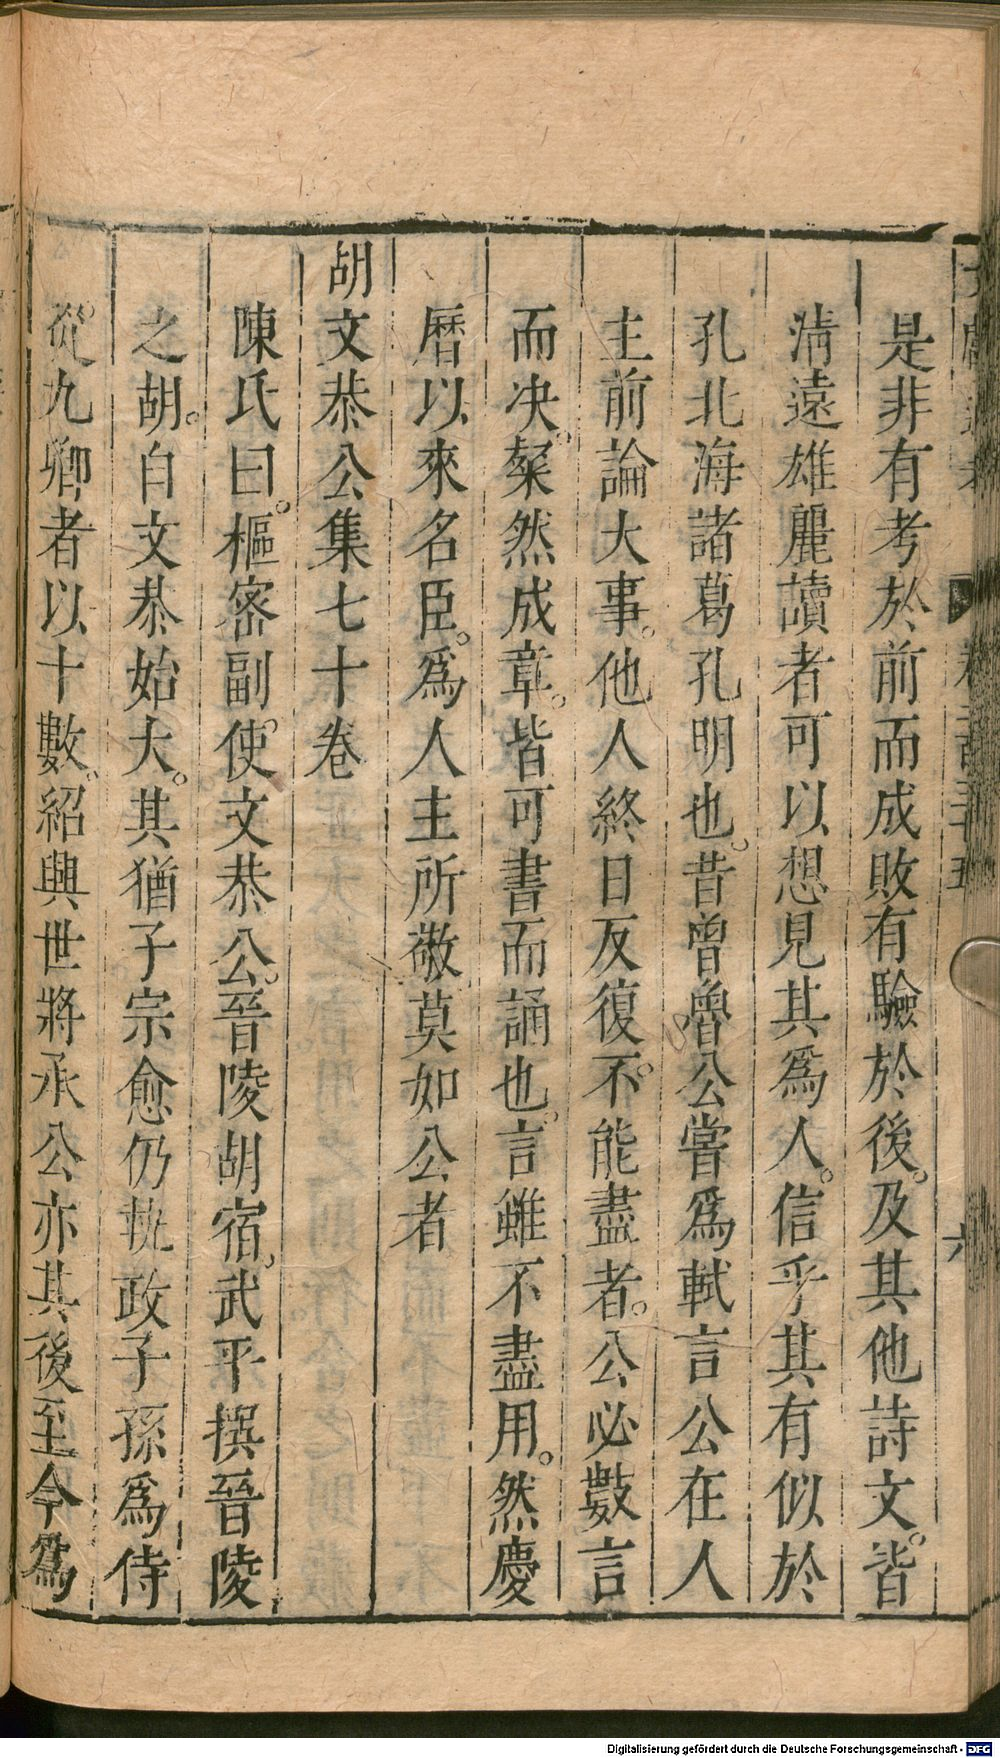 是非有考於前而成敗有驗於後。及其他詩文。皆
清遠雄麗讀者可以想見其爲人。信乎其有似於
孔北海諸葛孔明也。昔曾魯公嘗爲軾言公在人
主前論大事。他人終日反復。不能盡者。公必數言
而决。粲然成章。皆可書而誦也。言雖不盡用。然慶
曆以來名臣。爲人主所敬莫如公者
胡文恭公集七十卷
陳氏曰。樞密副使文恭公。晉陵胡宿。武平撰晉陵
之胡。自文恭始大。其猶子宗愈仍執政子孫爲侍
從。九卿者以十數。紹興世將承公亦其後至今爲
Digitalisierung gefördert durch die Deutsche Forschungsgemeinschaft - DFG